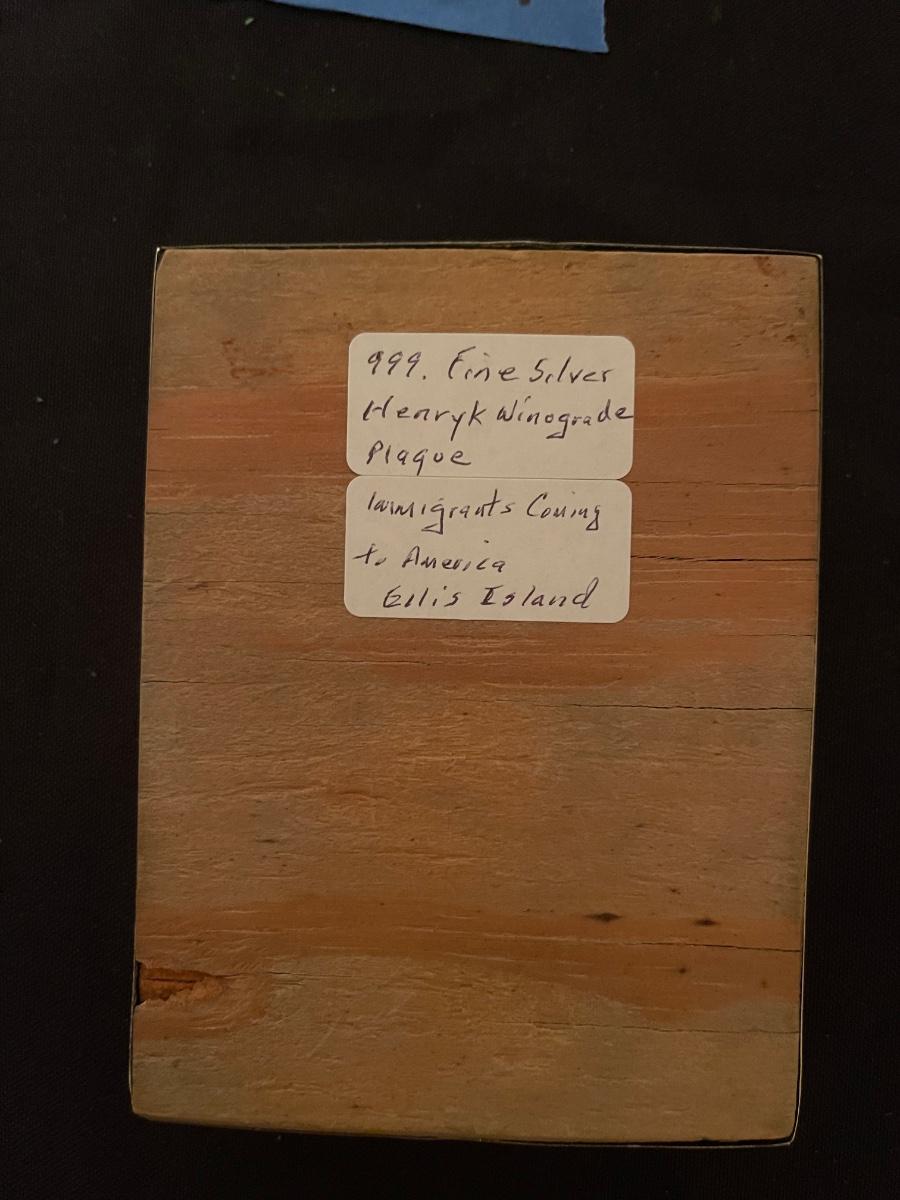 999. Fine Silver
Henryk Winograde
Plaque
Immigrants Coming
to America
Ellis Island